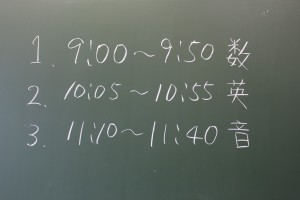 1. 9:00～9:50 数
2. 10:05～10:55 英
3. 11:10～11:40 音